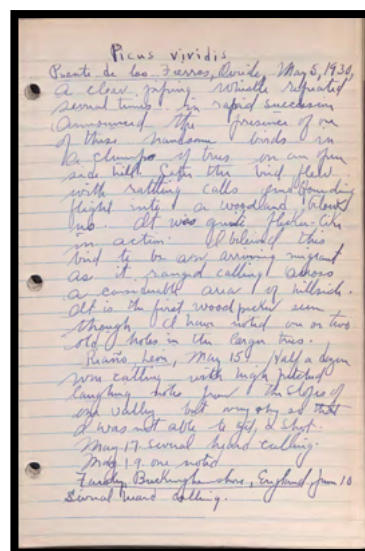 Picus viridis
Puente de los Fierros, Oviedo, May 5, 1930,
A clear piping whistle repeated
several times in rapid succession
announced the presence of one
of these handsome birds in
a clump of trees on an open
side hill. Later the bird flew
with rattling calls and bounding
flight into a woodland below
me. It was quite flicker-like
in action. I believed this
bird to be an arriving migrant
as it ranged calling across
a considerable area of hillside.
It is the first woodpecker seen
though I have noted one or two
old holes in the larger trees.
Riaño, Leon, May 15. Half a dozen
were calling with high pitched
laughing notes from the slopes of
one valley but very shy so that
I was not able to get a shot.
May 17 several heard calling.
May 19. one noted
Buckinghamshire, England, June 10
Several heard calling.